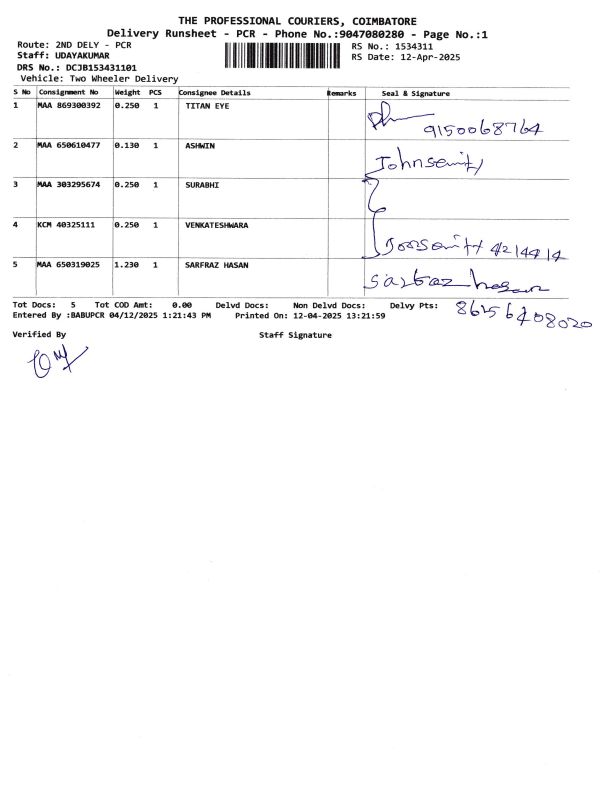 THE PROFESSIONAL COURIERS, COIMBATORE
Delivery Runsheet - PCR - Phone No.:9047080280 - Page No.:1
Route: 2ND DELY - PCR RS No.: 1534311
Staff: UDAYAKUMAR RS Date: 12-Apr-2025
DRS No.: DCJB153431101
Vehicle: Two Wheeler Delivery
S No Consignment No Weight PCS Consignee Details Remarks Seal & Signature
1 MAA 869300392 0.250 1 TITAN EYE
9150068764
2 MAA 650610477 0.130 1 ASHWIN
3 MAA 303295674 0.250 1 SURABHI
4 KCM 40325111 0.250 1 VENKATESHWARA
5 MAA 650319025 1.230 1 SARFRAZ HASAN
Sarfraz hasan
Tot Docs: 5 Tot COD Amt: 0.00 Delvd Docs: Non Delvd Docs: Delvy Pts:
Entered By :BABUPCR 04/12/2025 1:21:43 PM Printed On: 12-04-2025 13:21:59
Verified By Staff Signature